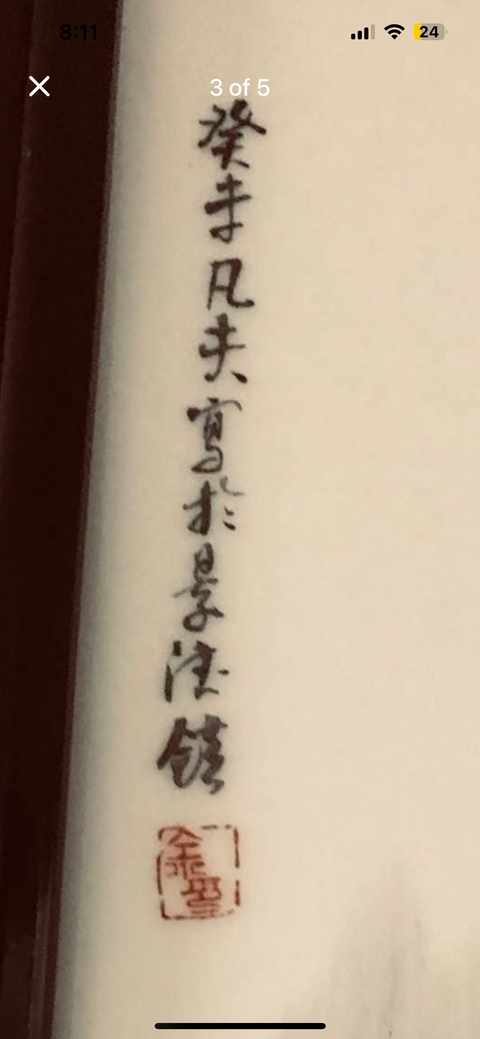 8:11
24
3 of 5
癸未凡夫寫於景德鎮